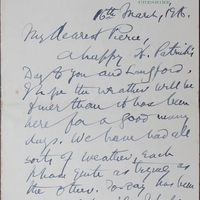 16th March, 1918.
My dearest Pierce,
A happy St. Patrick's
Day to you and Langford.
I hope the weather will be
finer than it has been
here for a good many
days. We have had all
sorts of weather, each
phase quite as trying as
the other. To-day has been